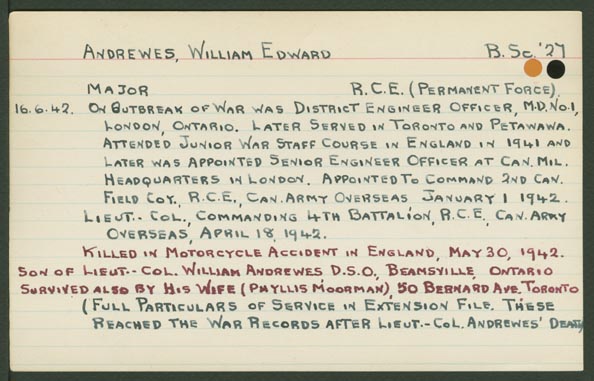 ANDREWES, WILLIAM EDWARD B.Sc.'27
MAJOR R.C.E. (PERMANENT FORCE).
16.6.42. ON OUTBREAK OF WAR WAS DISTRICT ENGINEER OFFICER, M.D. No.1,
LONDON, ONTARIO. LATER SERVED IN TORONTO AND PETAWAWA.
ATTENDED JUNIOR WAR STAFF COURSE IN ENGLAND IN 1941 AND
LATER WAS APPOINTED SENIOR ENGINEER OFFICER AT CAN. MIL.
HEADQUARTERS IN LONDON. APPOINTED TO COMMAND 2ND CAN.
FIELD COY., R.C.E., CAN. ARMY OVERSEAS JANUARY 1 1942.
LIEUT.-COL., COMMANDING 4TH BATTALION, R.C.E., CAN. ARMY
OVERSEAS, APRIL 18, 1942.
KILLED IN MOTORCYCLE ACCIDENT IN ENGLAND, MAY 30, 1942.
SON OF LIEUT.-COL. WILLIAM ANDREWES D.S.O., BEAMSVILLE, ONTARIO
SURVIVED ALSO BY HIS WIFE (PHYLLIS MOORMAN), 50 BERNARD AVE. TORONTO
(FULL PARTICULARS OF SERVICE IN EXTENSION FILE. THESE
REACHED THE WAR RECORDS AFTER LIEUT.-COL. ANDREWES' DEATH)